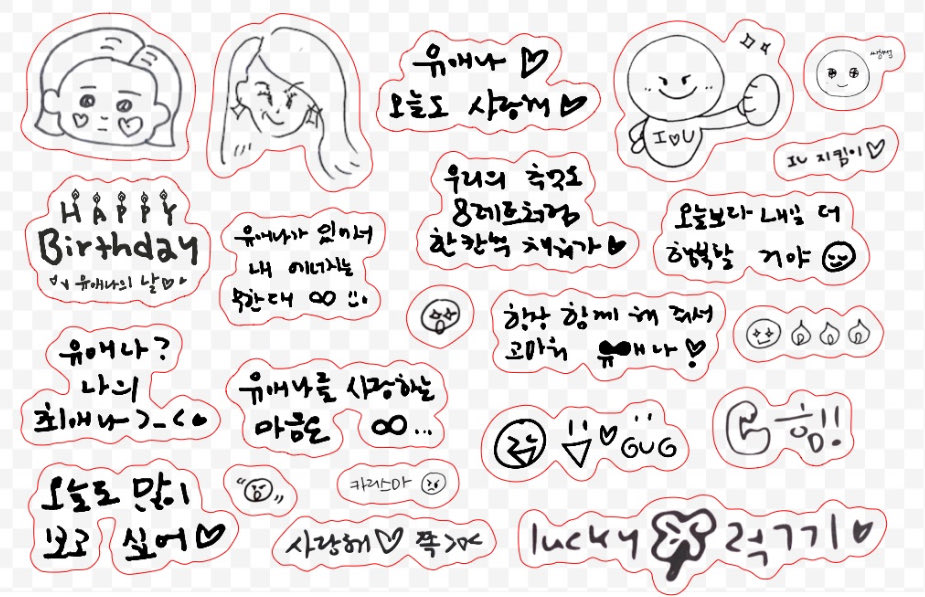 유애나 ♡
오늘도 사랑해 ♡
I ♡ U
IU 지킴이 ♡
HAPPY
Birthday
유애나의 날 ♡
유애나가 있어서
내 에너지는
무한대 ∞ :)
우리의 추억도
8레트처럼
한칸씩 채워가 ♡
오늘보다 내일 더
행복할 거야
항상 함께 해 줘서
고마워 유애나 ♡
유애나?
나의
최애나 >_<
유애나를 사랑하는
마음은 ∞...
GUG
흠!!
오늘도 많이
보고 싶어 ♡
카리스마
사랑해 ♡ 쪽 ><
lucky 럭ㄱㄱㅣ ♡